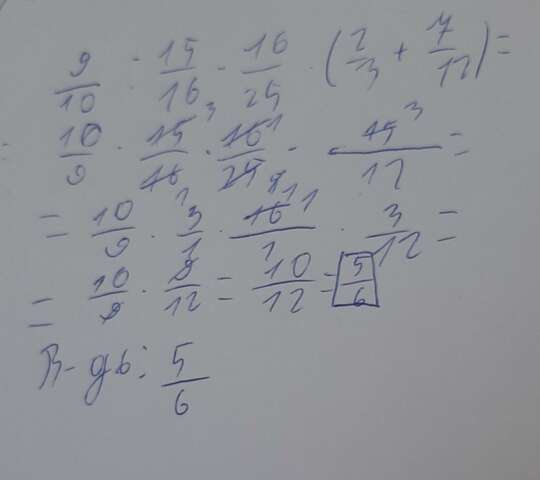 9/10 : 15/16 · 16/25 · (2/3 + 7/12) =
= 10/9 · 15/16 3 · 16/25 1 · 15/12 3 =
= 10/9 · 3/1 1 · 16/1 1 · 3/12 =
= 10/9 · 9/12 = 10/12 = 5/6
В-дь: 5/6